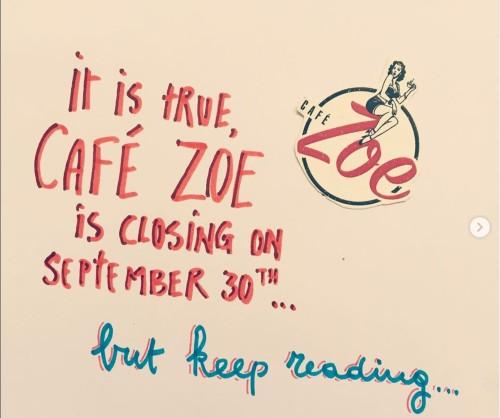 it is tRUE,
CAFÉ ZOE
is CLOSING ON
SEPTEMBER 30TH...
but keep reading....
CAFÉ
Zoe